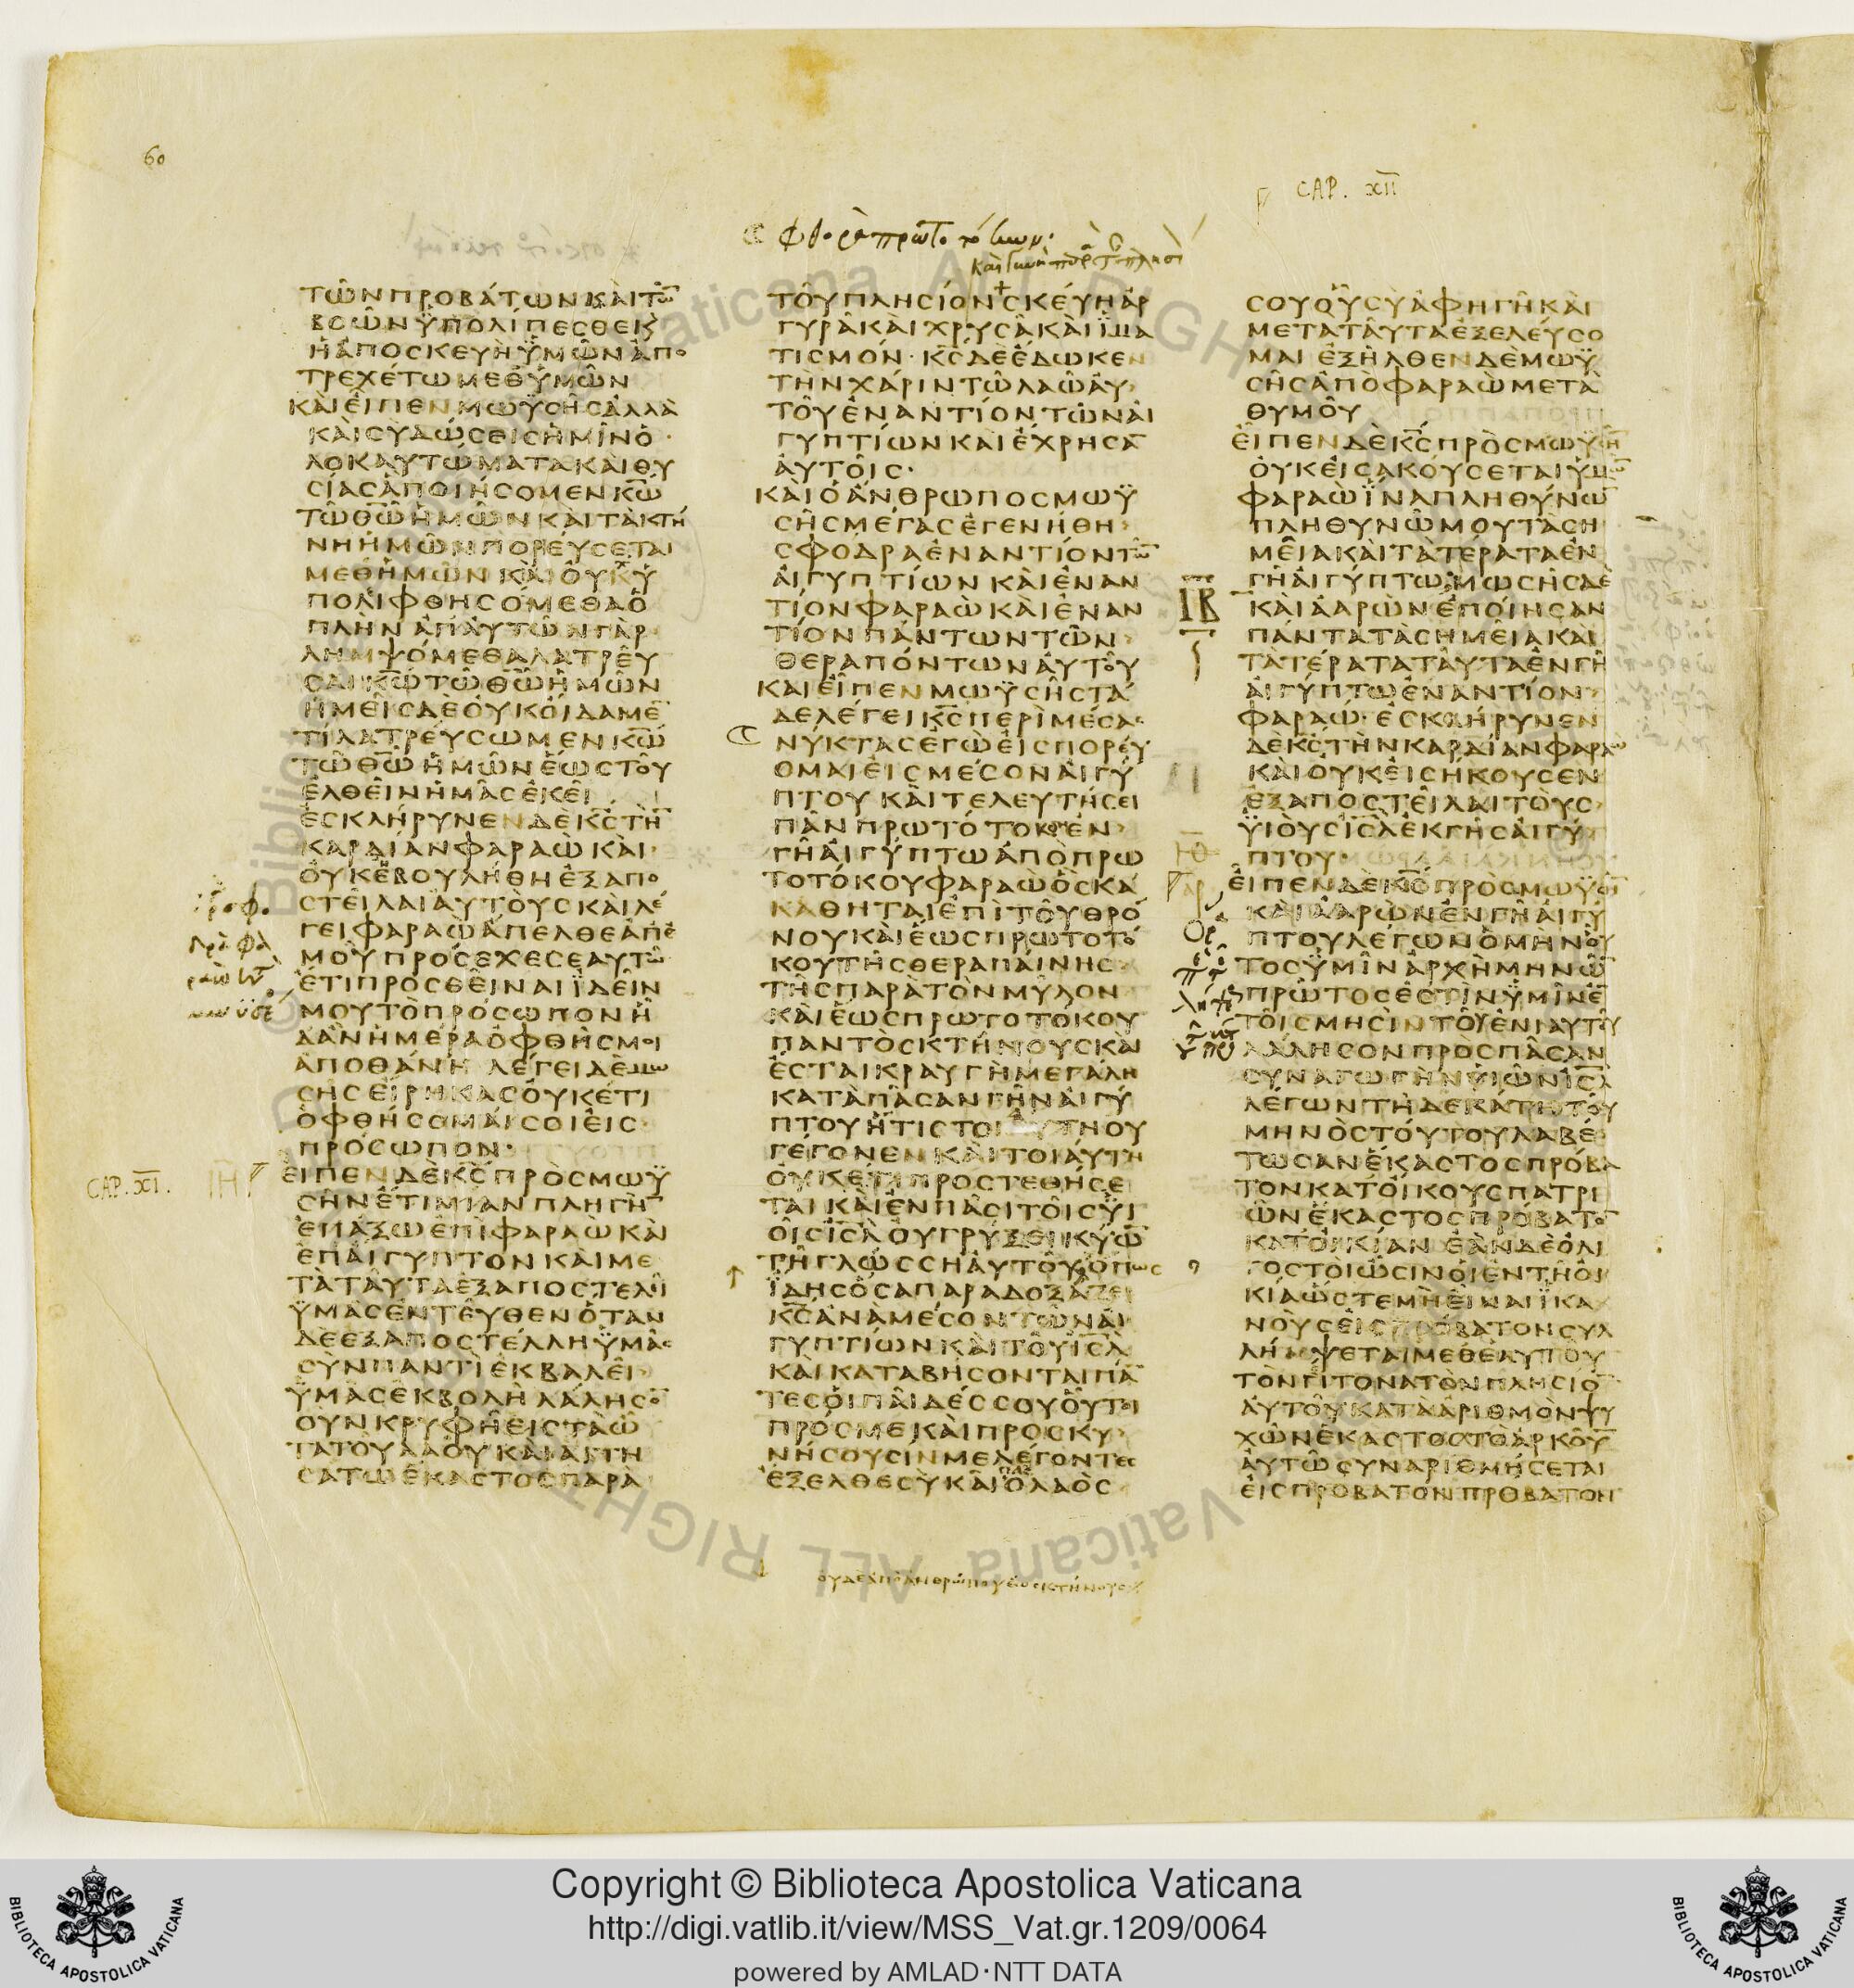 60
CAP. XII
ΤΩΝΠΡΟΒΑΤΩΝΚΑΙΤΩ̅
ΒΟΩΝΫΠΟΛΙΠΕΣΘΕΚΑΙ
ΗΑΠΟΣΚΕΥΗΫΜΩΝΑΠΟ
ΤΡΕΧΕΤΩΜΕΘΥΜΩΝ
ΚΑΙΕΙΠΕΝΜΩΫΣΗΣΑΛΛΑ
ΚΑΙΣΥΔΩΣΕΙΣΗΜΙΝΟ
ΛΟΚΑΥΤΩΜΑΤΑΚΑΙΘΥ
ΣΙΑΣΑΠΟΙΗΣΟΜΕΝΚ̅Ω̅
ΤΩΘ̅Ω̅ΗΜΩΝΚΑΙΤΑΚΤΗ
ΝΗΗΜΩΝΠΟΡΕΥΣΕΤΑΙ
ΜΕΘΗΜΩΝΚΑΙΟΥΧΫ
ΠΟΛΙΦΘΗΣΟΜΕΘΑΟ
ΠΛΗΝΑΠΑΥΤΩΝΓΑΡ
ΛΗΜΨΟΜΕΘΑΛΑΤΡΕΥ
ΣΑΙΚ̅Ω̅ΤΩΘ̅Ω̅ΗΜΩΝ
ΗΜΕΙΣΔΕΟΥΚΟΙΔΑΜΕ̅
ΤΙΛΑΤΡΕΥΣΩΜΕΝΚ̅Ω̅
ΤΩΘ̅Ω̅ΗΜΩΝΕΩΣΤΟΥ
ΕΛΘΕΙΝΗΜΑΣΕΚΕΙ
ΕΣΚΛΗΡΥΝΕΝΔΕΚ̅Σ̅ΤΗ̅
ΚΑΡΔΙΑΝΦΑΡΑΩΚΑΙ
ΟΥΚΕΒΟΥΛΗΘΗΕΞΑΠΟ
ΣΤΕΙΛΑΙΑΥΤΟΥΣΚΑΙΛΕ
ΓΕΙΦΑΡΑΩΑΠΕΛΘΕΑΠΕ
ΜΟΥΠΡΟΣΕΧΕΣΕΑΥΤΩ
ΕΤΙΠΡΟΣΘΕΙΝΑΙΪΔΕΙΝ
ΜΟΥΤΟΠΡΟΣΩΠΟΝΗ
ΔΑΝΗΜΕΡΑΟΦΘΗΣΜΟΙ
ΑΠΟΘΑΝΗ ΛΕΓΕΙΔΕΜΩ
ΣΗΣΕΙΡΗΚΑΣΟΥΚΕΤΙ
ΟΦΘΗΣΟΜΑΙΣΟΙΕΙΣ
ΠΡΟΣΩΠΟΝ·
CAP. XI.
ΕΙΠΕΝΔΕΚ̅Σ̅ΠΡΟΣΜΩΫ
ΣΗΝΕΤΙΜΙΑΝΠΛΗΓΗ̅
ΕΠΑΞΩΕΠΙΦΑΡΑΩΚΑΙ
ΕΠΑΙΓΥΠΤΟΝΚΑΙΜΕ
ΤΑΤΑΥΤΑΕΞΑΠΟΣΤΕΛΕΙ
ΫΜΑΣΕΝΤΕΥΘΕΝΟΤΑΝ
ΔΕΕΞΑΠΟΣΤΕΛΛΗΫΜΑΣ
ΣΥΝΠΑΝΤΙΕΚΒΑΛΕΙ
ΫΜΑΣΕΚΒΟΛΗΛΑΛΗΣΟ̅
ΟΥΝΚΡΥΦΗΕΙΣΤΑΩ
ΤΑΤΟΥΛΑΟΥΚΑΙΑΙΤΗ
ΣΑΤΩΕΚΑΣΤΟΣΠΑΡΑ
ΤΟΥΠΛΗΣΙΟΝΣΚΕΥΗΑΡ
ΓΥΡΑΚΑΙΧΡΥΣΑΚΑΙΪΜΑ
ΤΙΣΜΟΝ·Κ̅Σ̅ΔΕΕΔΩΚΕΝ
ΤΗΝΧΑΡΙΝΤΩΛΑΩΑΥ
ΤΟΥΕΝΑΝΤΙΟΝΤΩΝΑΙ
ΓΥΠΤΙΩΝΚΑΙΕΧΡΗΣΑ̅
ΑΥΤΟΙΣ·
ΚΑΙΟΑΝΘΡΩΠΟΣΜΩΫ
ΣΗΣΜΕΓΑΣΕΓΕΝΗΘΗ
ΣΦΟΔΡΑΕΝΑΝΤΙΟΝΤΩ̅
ΑΙΓΥΠΤΙΩΝΚΑΙΕΝΑΝ
ΤΙΟΝΦΑΡΑΩΚΑΙΕΝΑΝ
ΤΙΟΝΠΑΝΤΩΝΤΩΝ
ΘΕΡΑΠΟΝΤΩΝΑΥΤΟΥ
ΚΑΙΕΙΠΕΝΜΩΫΣΗΣΤΑ
ΔΕΛΕΓΕΙΚ̅Σ̅ΠΕΡΙΜΕΣΑΣ
ΝΥΚΤΑΣΕΓΩΕΙΣΠΟΡΕΥ
ΟΜΑΙΕΙΣΜΕΣΟΝΑΙΓΥ
ΠΤΟΥΚΑΙΤΕΛΕΥΤΗΣΕΙ
ΠΑΝΠΡΩΤΟΤΟΚΟΝΕΝ
ΓΗΑΙΓΥΠΤΩΑΠΟΠΡΩ
ΤΟΤΟΚΟΥΦΑΡΑΩΟΣΚΑ
ΚΑΘΗΤΑΙΕΠΙΤΟΥΘΡΟ
ΝΟΥΚΑΙΕΩΣΠΡΩΤΟΤΟ
ΚΟΥΤΗΣΘΕΡΑΠΑΙΝΗΣ
ΤΗΣΠΑΡΑΤΟΝΜΥΛΟΝ
ΚΑΙΕΩΣΠΡΩΤΟΤΟΚΟΥ
ΠΑΝΤΟΣΚΤΗΝΟΥΣΚΑΙ
ΕΣΤΑΙΚΡΑΥΓΗΜΕΓΑΛΗ
ΚΑΤΑΠΑΣΑΝΓΗΝΑΙΓΥ
ΠΤΟΥΗΤΙΣΤΟΙΑΥΤΗΟΥ
ΓΕΓΟΝΕΝΚΑΙΤΟΙΑΥΤΗ
ΟΥΚΕΤΙΠΡΟΣΤΕΘΗΣΕ
ΤΑΙΚΑΙΕΝΠΑΣΙΤΟΙΣΫΙ
ΟΙΣΙ̅Σ̅Λ̅ΟΥΓΡΥΞΕΙΚΥΩ̅
ΤΗΓΛΩΣΣΗΑΥΤΟΥΟΠΩΣ
ΪΔΗΣΟΣΑΠΑΡΑΔΟΞΑΣΕΙ
Κ̅Σ̅ΑΝΑΜΕΣΟΝΤΩΝΑΙ
ΓΥΠΤΙΩΝΚΑΙΤΟΥΙ̅Σ̅Λ̅
ΚΑΙΚΑΤΑΒΗΣΟΝΤΑΙΠΑ̅
ΤΕΣΟΙΠΑΙΔΕΣΣΟΥΟΥΤΟΙ
ΠΡΟΣΜΕΚΑΙΠΡΟΣΚΥ
ΝΗΣΟΥΣΙΝΜΕΛΕΓΟΝΤΕΣ
ΕΞΕΛΘΕΣΥΚΑΙΟΛΑΟΣ
ουδεαποανθρωπουεωσκτηνουσ
ΣΟΥΟΥΣΥΑΦΗΓΗΚΑΙ
ΜΕΤΑΤΑΥΤΑΕΞΕΛΕΥΣΟ
ΜΑΙ ΕΞΗΛΘΕΝΔΕΜΩΫ
ΣΗΣΑΠΟΦΑΡΑΩΜΕΤΑ
ΘΥΜΟΥ
ΕΙΠΕΝΔΕΚ̅Σ̅ΠΡΟΣΜΩΫΣΗ̅
ΟΥΚΕΙΣΑΚΟΥΣΕΤΑΙΫΜΩ̅
ΦΑΡΑΩΪΝΑΠΛΗΘΥΝΩ̅
ΠΛΗΘΥΝΩΜΟΥΤΑΣΗ
ΜΕΙΑΚΑΙΤΑΤΕΡΑΤΑΕΝ
ΓΗΑΙΓΥΠΤΩΜΩΣΗΣΔΕ
ΙΒ
ΚΑΙΑΑΡΩΝΕΠΟΙΗΣΑΝ
ΠΑΝΤΑΤΑΣΗΜΕΙΑΚΑΙ
ΤΑΤΕΡΑΤΑΤΑΥΤΑΕΝΓΗ
ΑΙΓΥΠΤΩΕΝΑΝΤΙΟΝ
ΦΑΡΑΩ·ΕΣΚΛΗΡΥΝΕΝ
ΔΕΚ̅Σ̅ΤΗΝΚΑΡΔΙΑΝΦΑΡΑΩ
ΚΑΙΟΥΚΕΙΣΗΚΟΥΣΕΝ
ΕΞΑΠΟΣΤΕΙΛΑΙΤΟΥΣ
ΫΙΟΥΣΙ̅Σ̅Λ̅ΕΚΓΗΣΑΙΓΥ
ΠΤΟΥ
ΕΙΠΕΝΔΕΚ̅Σ̅ΠΡΟΣΜΩΫΣΗ̅
ΚΑΙΑΑΡΩΝΕΝΓΗΑΙΓΥ
ΠΤΟΥΛΕΓΩΝΟΜΗΝΟΥ
ΤΟΣΫΜΙΝΑΡΧΗΜΗΝΩ̅
ΠΡΩΤΟΣΕΣΤΙΝΫΜΙΝΕ̅
ΤΟΙΣΜΗΣΙΝΤΟΥΕΝΙΑΥΤΟΥ
ΛΑΛΗΣΟΝΠΡΟΣΠΑΣΑΝ
ΣΥΝΑΓΩΓΗΝΫΙΩΝΙ̅Σ̅Λ̅
ΛΕΓΩΝΤΗΔΕΚΑΤΗΤΟΥ
ΜΗΝΟΣΤΟΥΤΟΥΛΑΒΕ
ΤΩΣΑΝΕΚΑΣΤΟΣΠΡΟΒΑ
ΤΟΝΚΑΤΟΙΚΟΥΣΠΑΤΡΙ
ΩΝΕΚΑΣΤΟΣΠΡΟΒΑΤΟ̅
ΚΑΤΟΙΚΙΑΝΕΑΝΔΕΟΛΙ
ΓΟΣΤΟΙΩΣΙΝΟΙΕΝΤΗΟΙ
ΚΙΑΩΣΤΕΜΗΕΙΝΑΙΪΚΑ
ΝΟΥΣΕΙΣΠΡΟΒΑΤΟΝΣΥΛ
ΛΗΜΨΕΤΑΙΜΕΘΕΑΥΤΟΥ
ΤΟΝΓΙΤΟΝΑΤΟΝΠΛΗΣΙΟ̅
ΑΥΤΟΥΚΑΤΑΑΡΙΘΜΟΝΨΥ
ΧΩΝΕΚΑΣΤΟΣΤΟΑΡΚΟΥ̅
ΑΥΤΩΣΥΝΑΡΙΘΜΗΣΕΤΑΙ
ΕΙΣΠΡΟΒΑΤΟΝΠΡΟΒΑΤΟΝ
Copyright © Biblioteca Apostolica Vaticana
http://digi.vatlib.it/view/MSS_Vat.gr.1209/0064
powered by AMLAD·NTT DATA
BIBLIOTECA APOSTOLICA VATICANA
BIBLIOTECA APOSTOLICA VATICANA